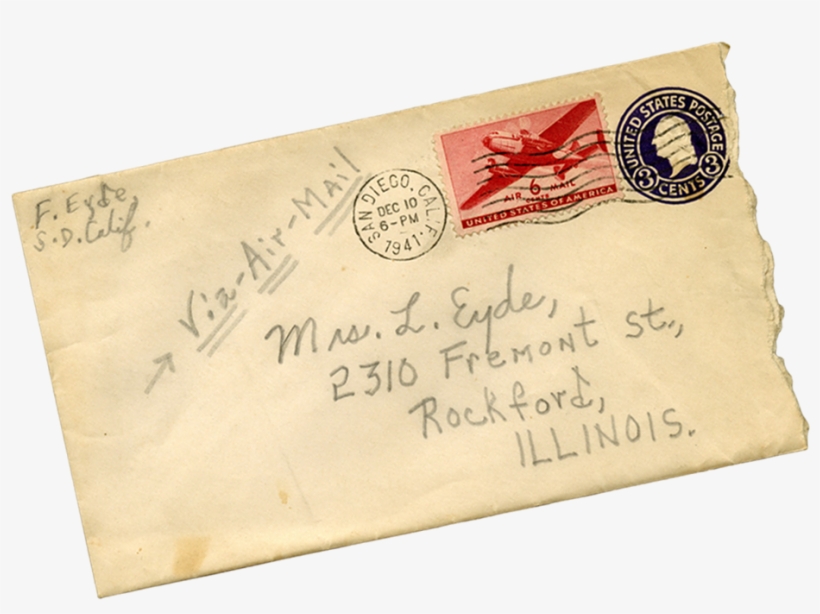 F. Eyde,
S.D. Calif.
Via-Air-MAil
SAN DIEGO, CALIF.
DEC 10
6-PM
1941
6
CENTS
AIR MAIL
UNITED STATES OF AMERICA
UNITED STATES POSTAGE
3 CENTS 3
Mrs. L. Eyde,
2310 Fremont St.,
Rockford,
ILLINOIS.